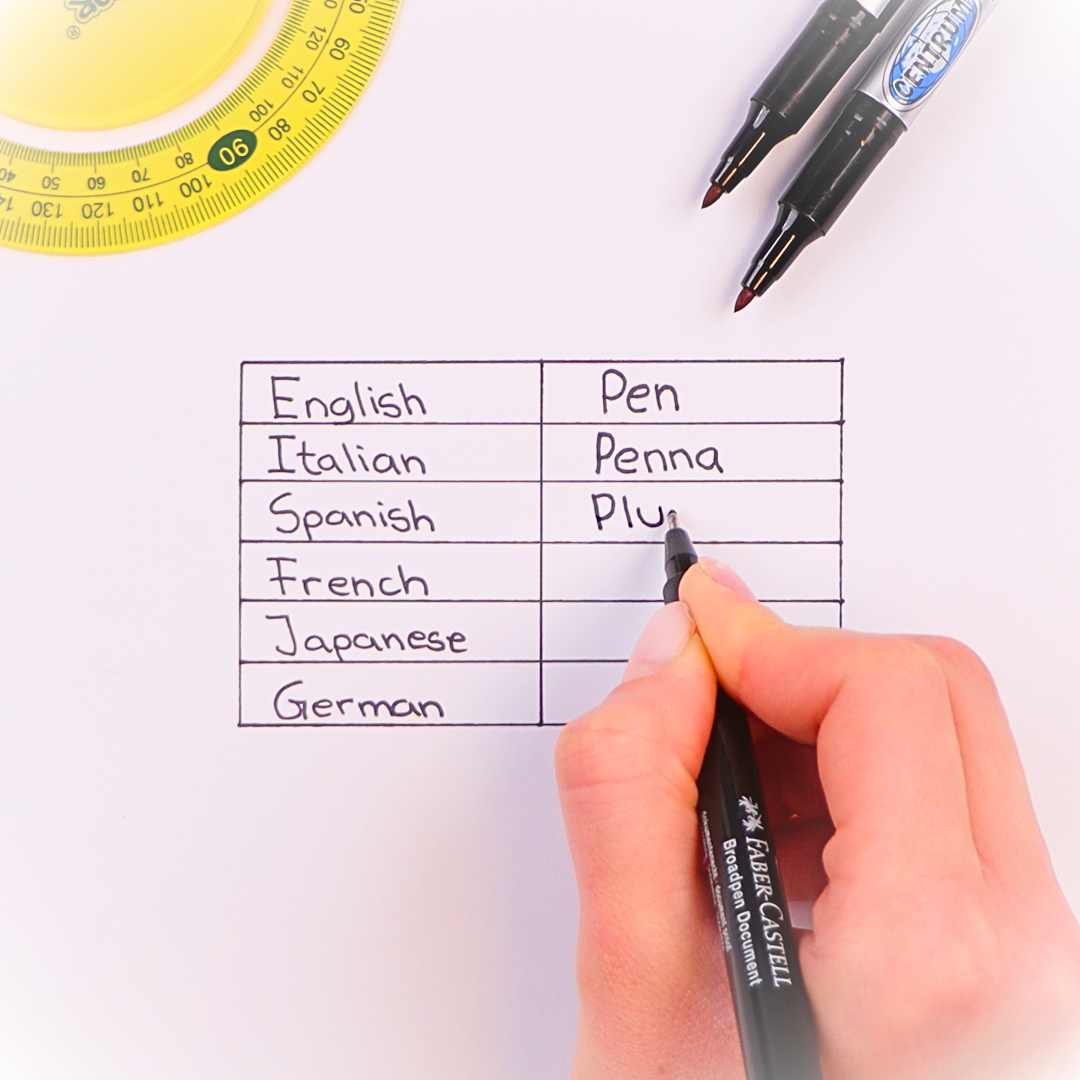 60 120
70 110
80 100
90
100 80
110 70
120 60
130 50
40
CENTRUM
English Pen
Italian Penna
Spanish Plu
French
Japanese
German
FABER-CASTELL
Broadpen Document